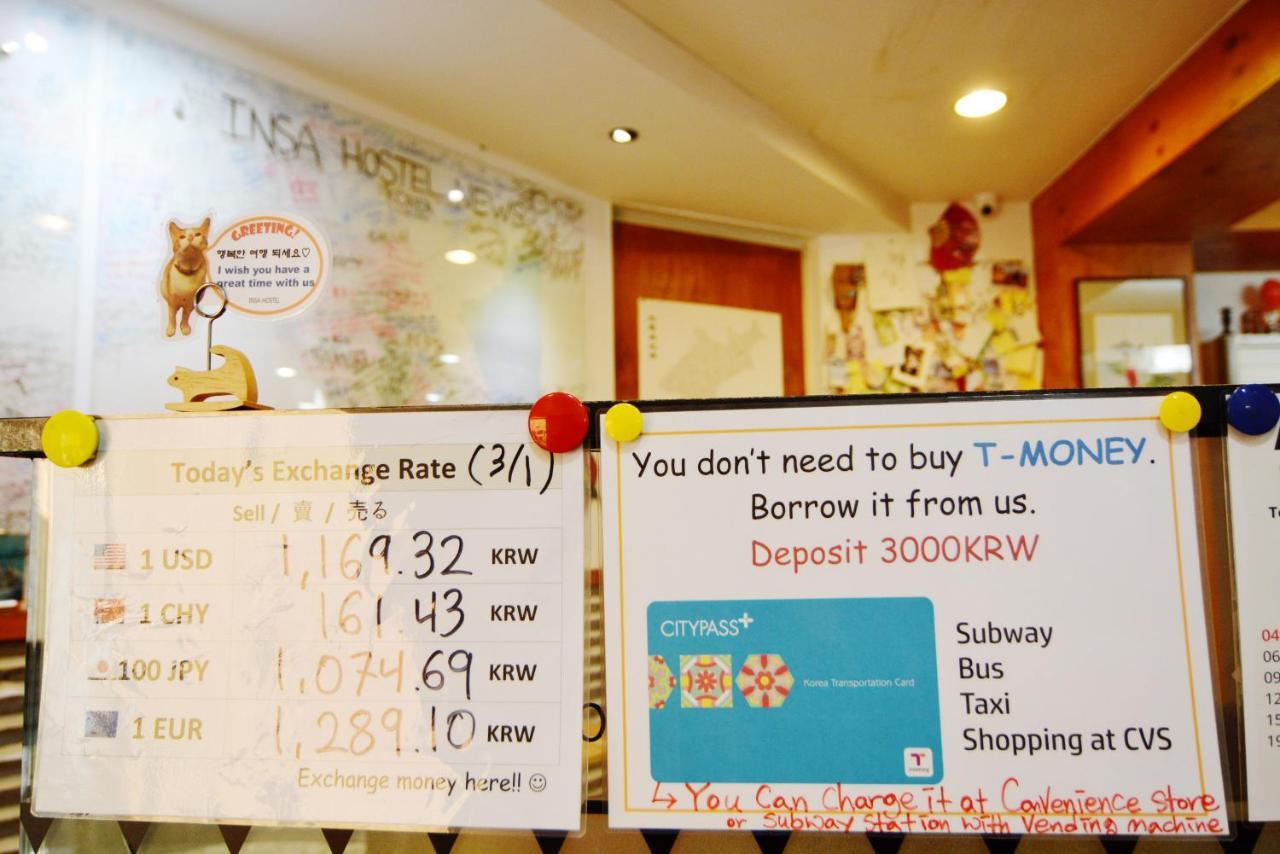 INSA HOSTEL NEWS
GREETING!
행복한 여행 되세요♡
I wish you have a
great time with us
INSA HOSTEL
Today's Exchange Rate (3/1)
Sell / 賣 / 売る
1 USD 1,169.32 KRW
1 CHY 161.43 KRW
100 JPY 1,074.69 KRW
1 EUR 1,289.10 KRW
Exchange money here!! ☺
You don't need to buy T-MONEY.
Borrow it from us.
Deposit 3000KRW
CITYPASS+
Korea Transportation Card
T
Subway
Bus
Taxi
Shopping at CVS
↳ You Can Charge it at Convenience Store
or Subway Station with Vending machine
04
06
09
12
15
19